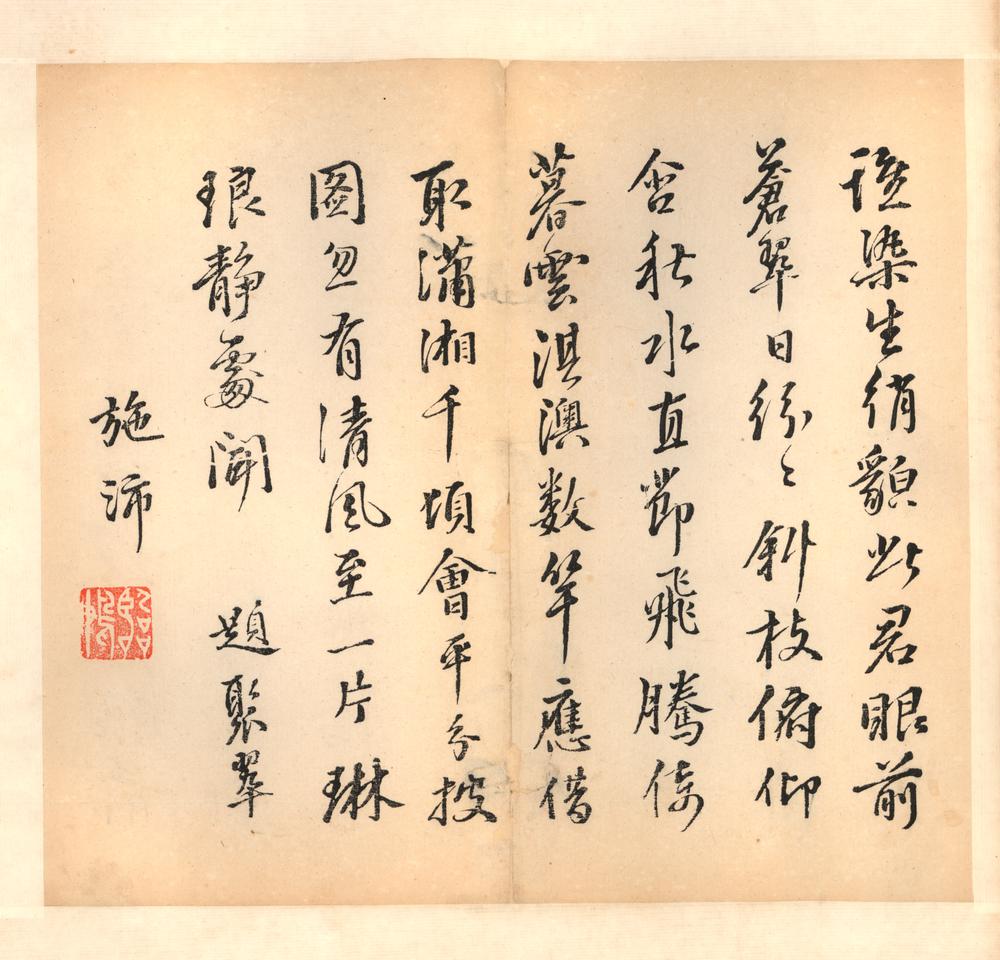 誰染生綃貌此君眼前
蒼翠日紛〻斜枝俯仰
含秋水直節飛騰倚
暮雲淇澳數竿應借
取瀟湘千頃會平分披
圖忽有清風至一片琳
琅靜處聞 題聚翠
施沛